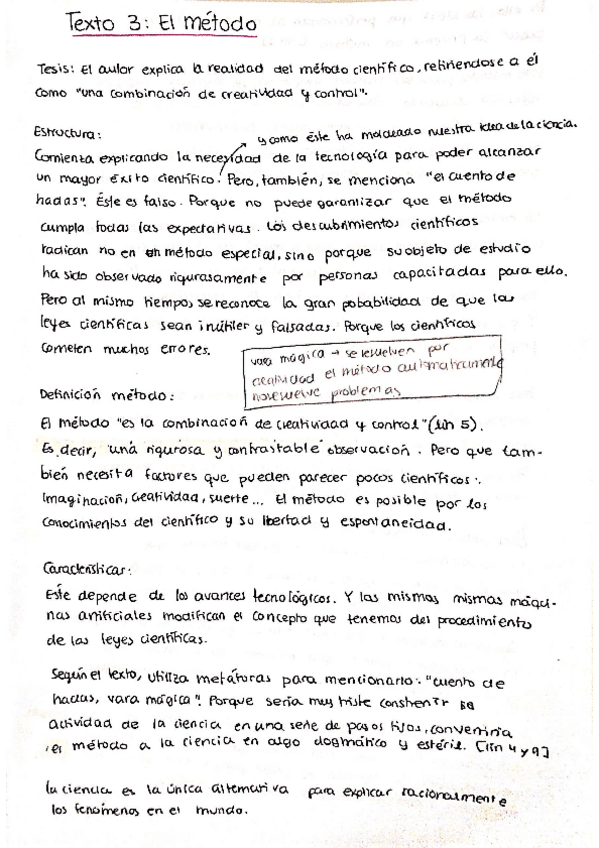 Texto 3: El método
Tesis: El autor explica la realidad del método científico, refiriendose a él
como "una combinación de creatividad y control".
Estructura:
y como éste ha moldeado nuestra idea de la ciencia.
Comienza explicando la necesidad de la tecnología para poder alcanzar
un mayor éxito científico. Pero, también, se menciona "el cuento de
hadas". Éste es falso. Porque no puede garantizar que el método
cumpla todas las expectativas. Los descubrimientos científicos
radican no en un método especial, sino porque su objeto de estudio
ha sido observado rigurosamente por personas capacitadas para ello.
Pero al mismo tiempo, se reconoce la gran pobabilidad de que las
leyes científicas sean inútiler y falsadas. Porque los científicos
cometen muchos errores.
vara mágica → se resuelven por
creatividad el método automaticamente
no resuelve problemas
Definición método:
El método "es la combinación de creatividad y control" (lin 5).
Es decir, "una rigurosa y contrastable" observación. Pero que tam-
bién necesita factores que pueden parecer pocos científicos:
Imaginación, creatividad, suerte... El método es posible por los
conocimientos del científico y su libertad y espontaneidad.
Características:
Éste depende de los avances tecnológicos. Y las mismas mismas máqui-
nas artificiales modifican el concepto que tenemos del procedimiento
de las leyes científicas.
Según el texto, utiliza metáforas para mencionarlo: "cuento de
hadas, vara mágica". Porque sería muy triste constreñir su
actividad de la ciencia en una serie de pasos fijos, convertiría
el método a la ciencia en algo dogmático y estéril. [lin 4 y 9]
La ciencia es la única alternativa para explicar racionalmente
los fenómenos en el mundo.